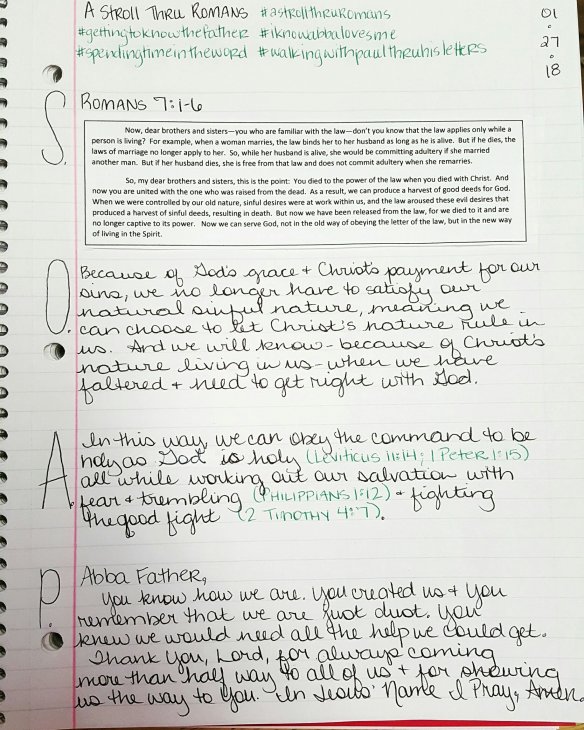 A Stroll Thru Romans #astrollthruromans
01
#gettingtoknowthefather #iknowabbalovesme
27
#spendingtimeintheword #walkingwithpaulthruhisletters
18
S.
Romans 7:1-6
Now, dear brothers and sisters—you who are familiar with the law—don't you know that the law applies only while a
person is living? For example, when a woman marries, the law binds her to her husband as long as he is alive. But if he dies, the
laws of marriage no longer apply to her. So, while her husband is alive, she would be committing adultery if she married
another man. But if her husband dies, she is free from that law and does not commit adultery when she remarries.
So, my dear brothers and sisters, this is the point: You died to the power of the law when you died with Christ. And
now you are united with the one who was raised from the dead. As a result, we can produce a harvest of good deeds for God.
When we were controlled by our old nature, sinful desires were at work within us, and the law aroused these evil desires that
produced a harvest of sinful deeds, resulting in death. But now we have been released from the law, for we died to it and are
no longer captive to its power. Now we can serve God, not in the old way of obeying the letter of the law, but in the new way
of living in the Spirit.
O.
Because of God's grace + Christ's payment for our
sins, we no longer have to satisfy our
natural sinful nature, meaning we
can choose to let Christ's nature rule in
us. And we will know - because of Christ's
nature living in us - when we have
faltered + need to get right with God.
A.
In this way, we can obey the command to be
holy as God is holy (Leviticus 11:14; 1 Peter 1:15)
all while working out our salvation with
fear + trembling (Philippians 1:12) + fighting
the good fight (2 Timothy 4:7).
P.
Abba Father,
You know how we are. You created us + You
remember that we are just dust. You
knew we would need all the help we could get.
Thank You, Lord, for always coming
more than half way to all of us + for showing
us the way to You. In Jesus' Name I Pray, Amen.